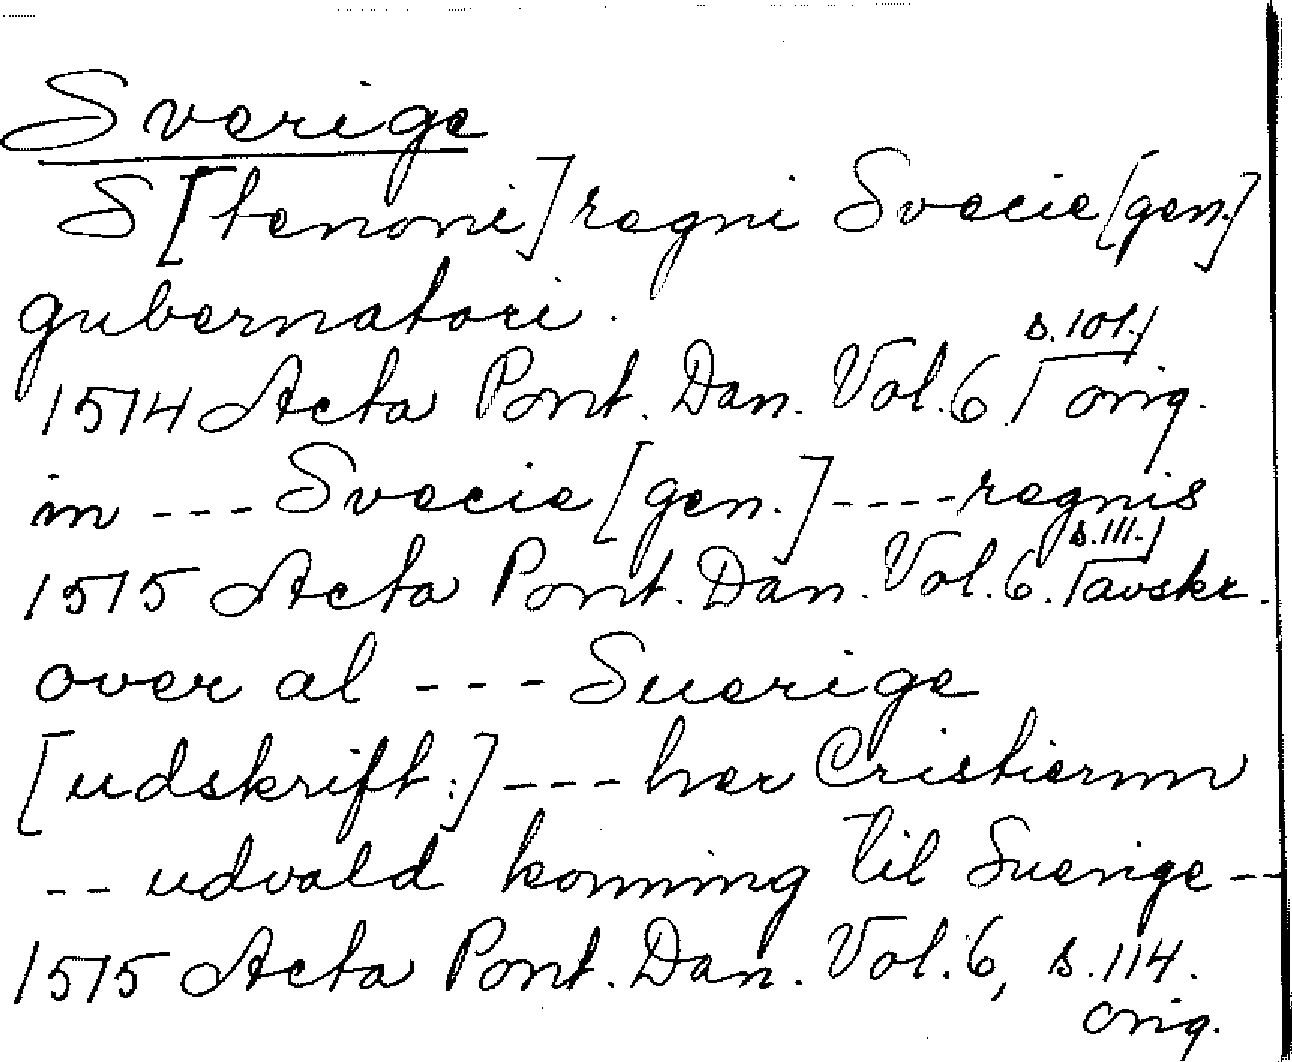 Sverige
S[tenoni] regni Svecie [gen.]
gubernatori.
1514 Acta Pont. Dan. Vol. 6, s. 101. orig.
in --- Svecie [gen.] ---- regnis
1515 Acta Pont. Dan. Vol. 6. s. 111. avskr.
over al --- Suerige
[udskrift:] --- her Cristiernn
-- udvald konning til Suerige --
1515 Acta Pont. Dan. Vol. 6, s. 114.
orig.